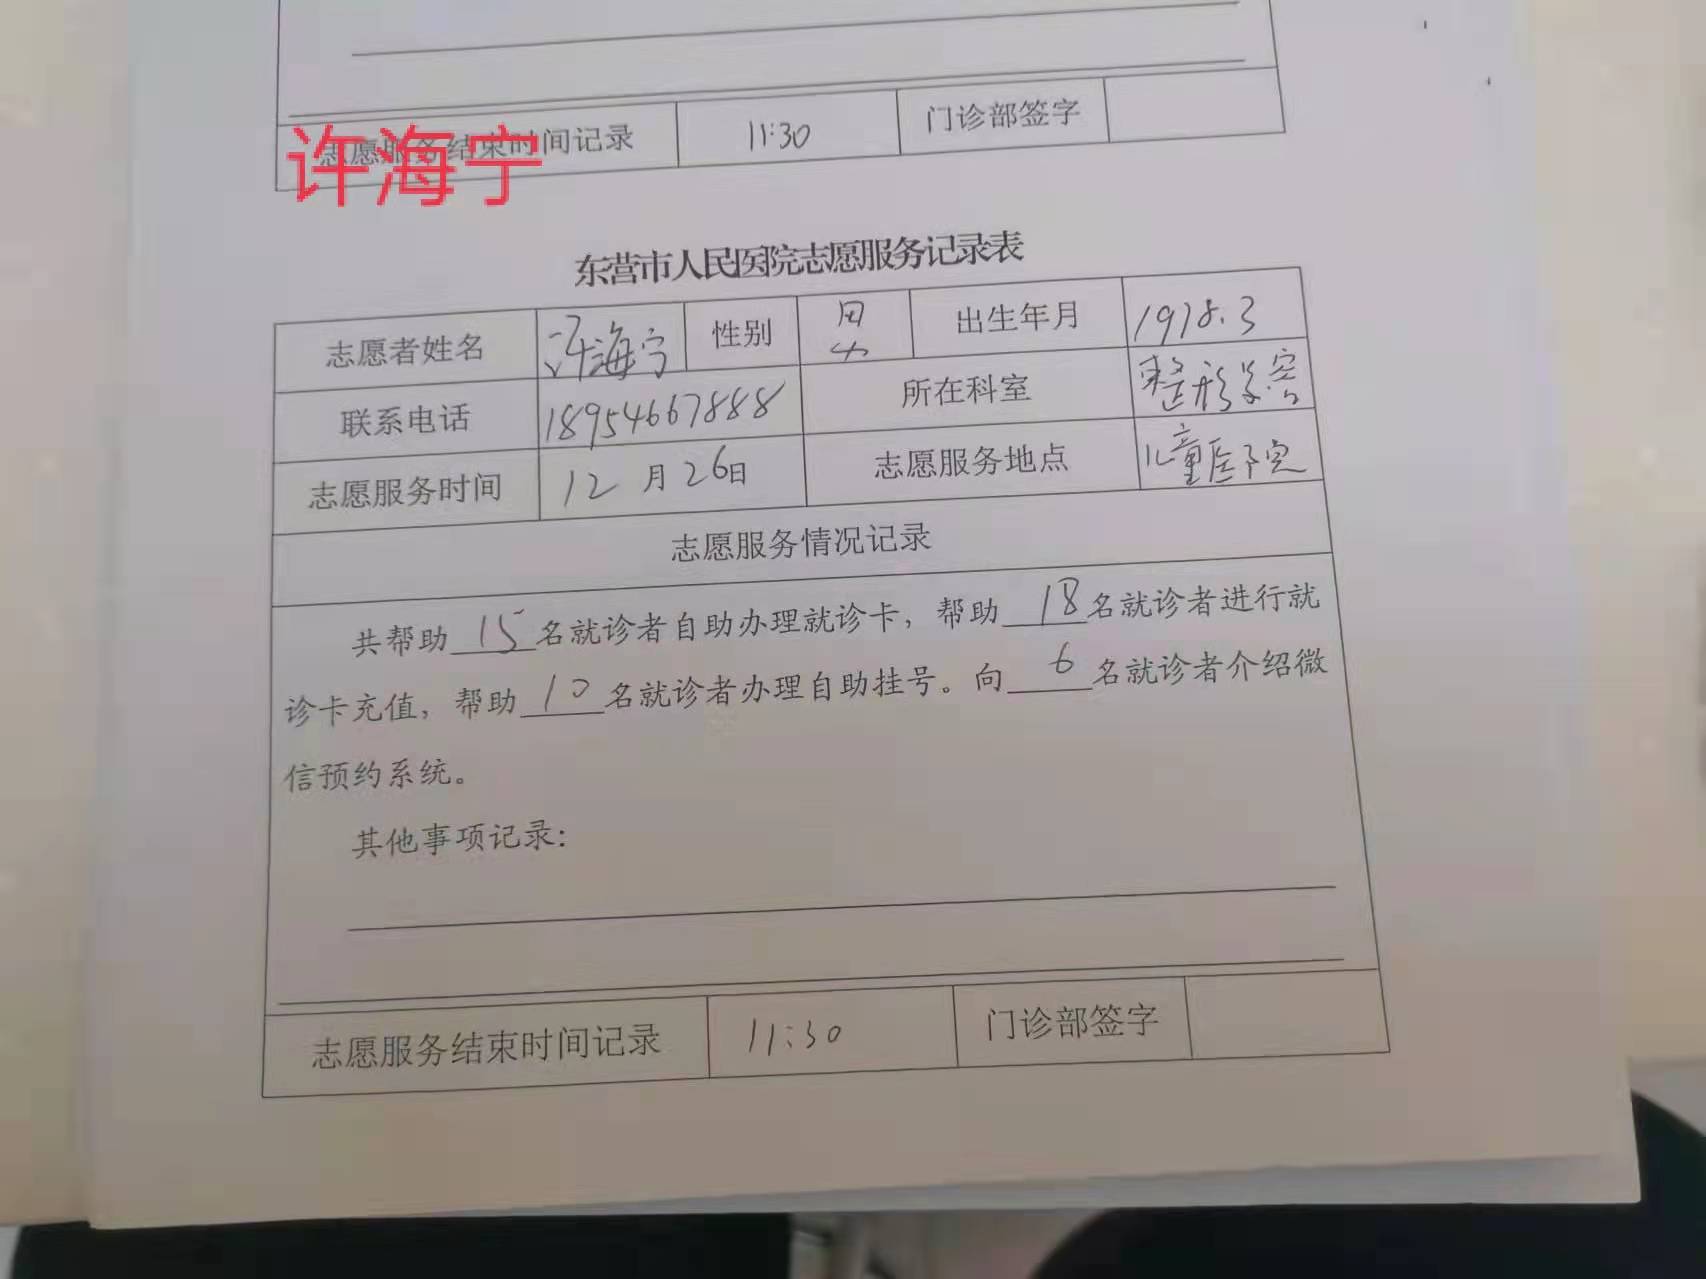 志愿服务结束时间记录 11:30 门诊部签字
许海宁
东营市人民医院志愿服务记录表
志愿者姓名 许海宁 性别 男 出生年月 1978.3
联系电话 18954667888 所在科室 整形美容
志愿服务时间 12月26日 志愿服务地点 儿童医院
志愿服务情况记录
共帮助 15 名就诊者自助办理就诊卡，帮助 18 名就诊者进行就
诊卡充值，帮助 10 名就诊者办理自助挂号。向 6 名就诊者介绍微
信预约系统。
其他事项记录：
志愿服务结束时间记录 11:30 门诊部签字